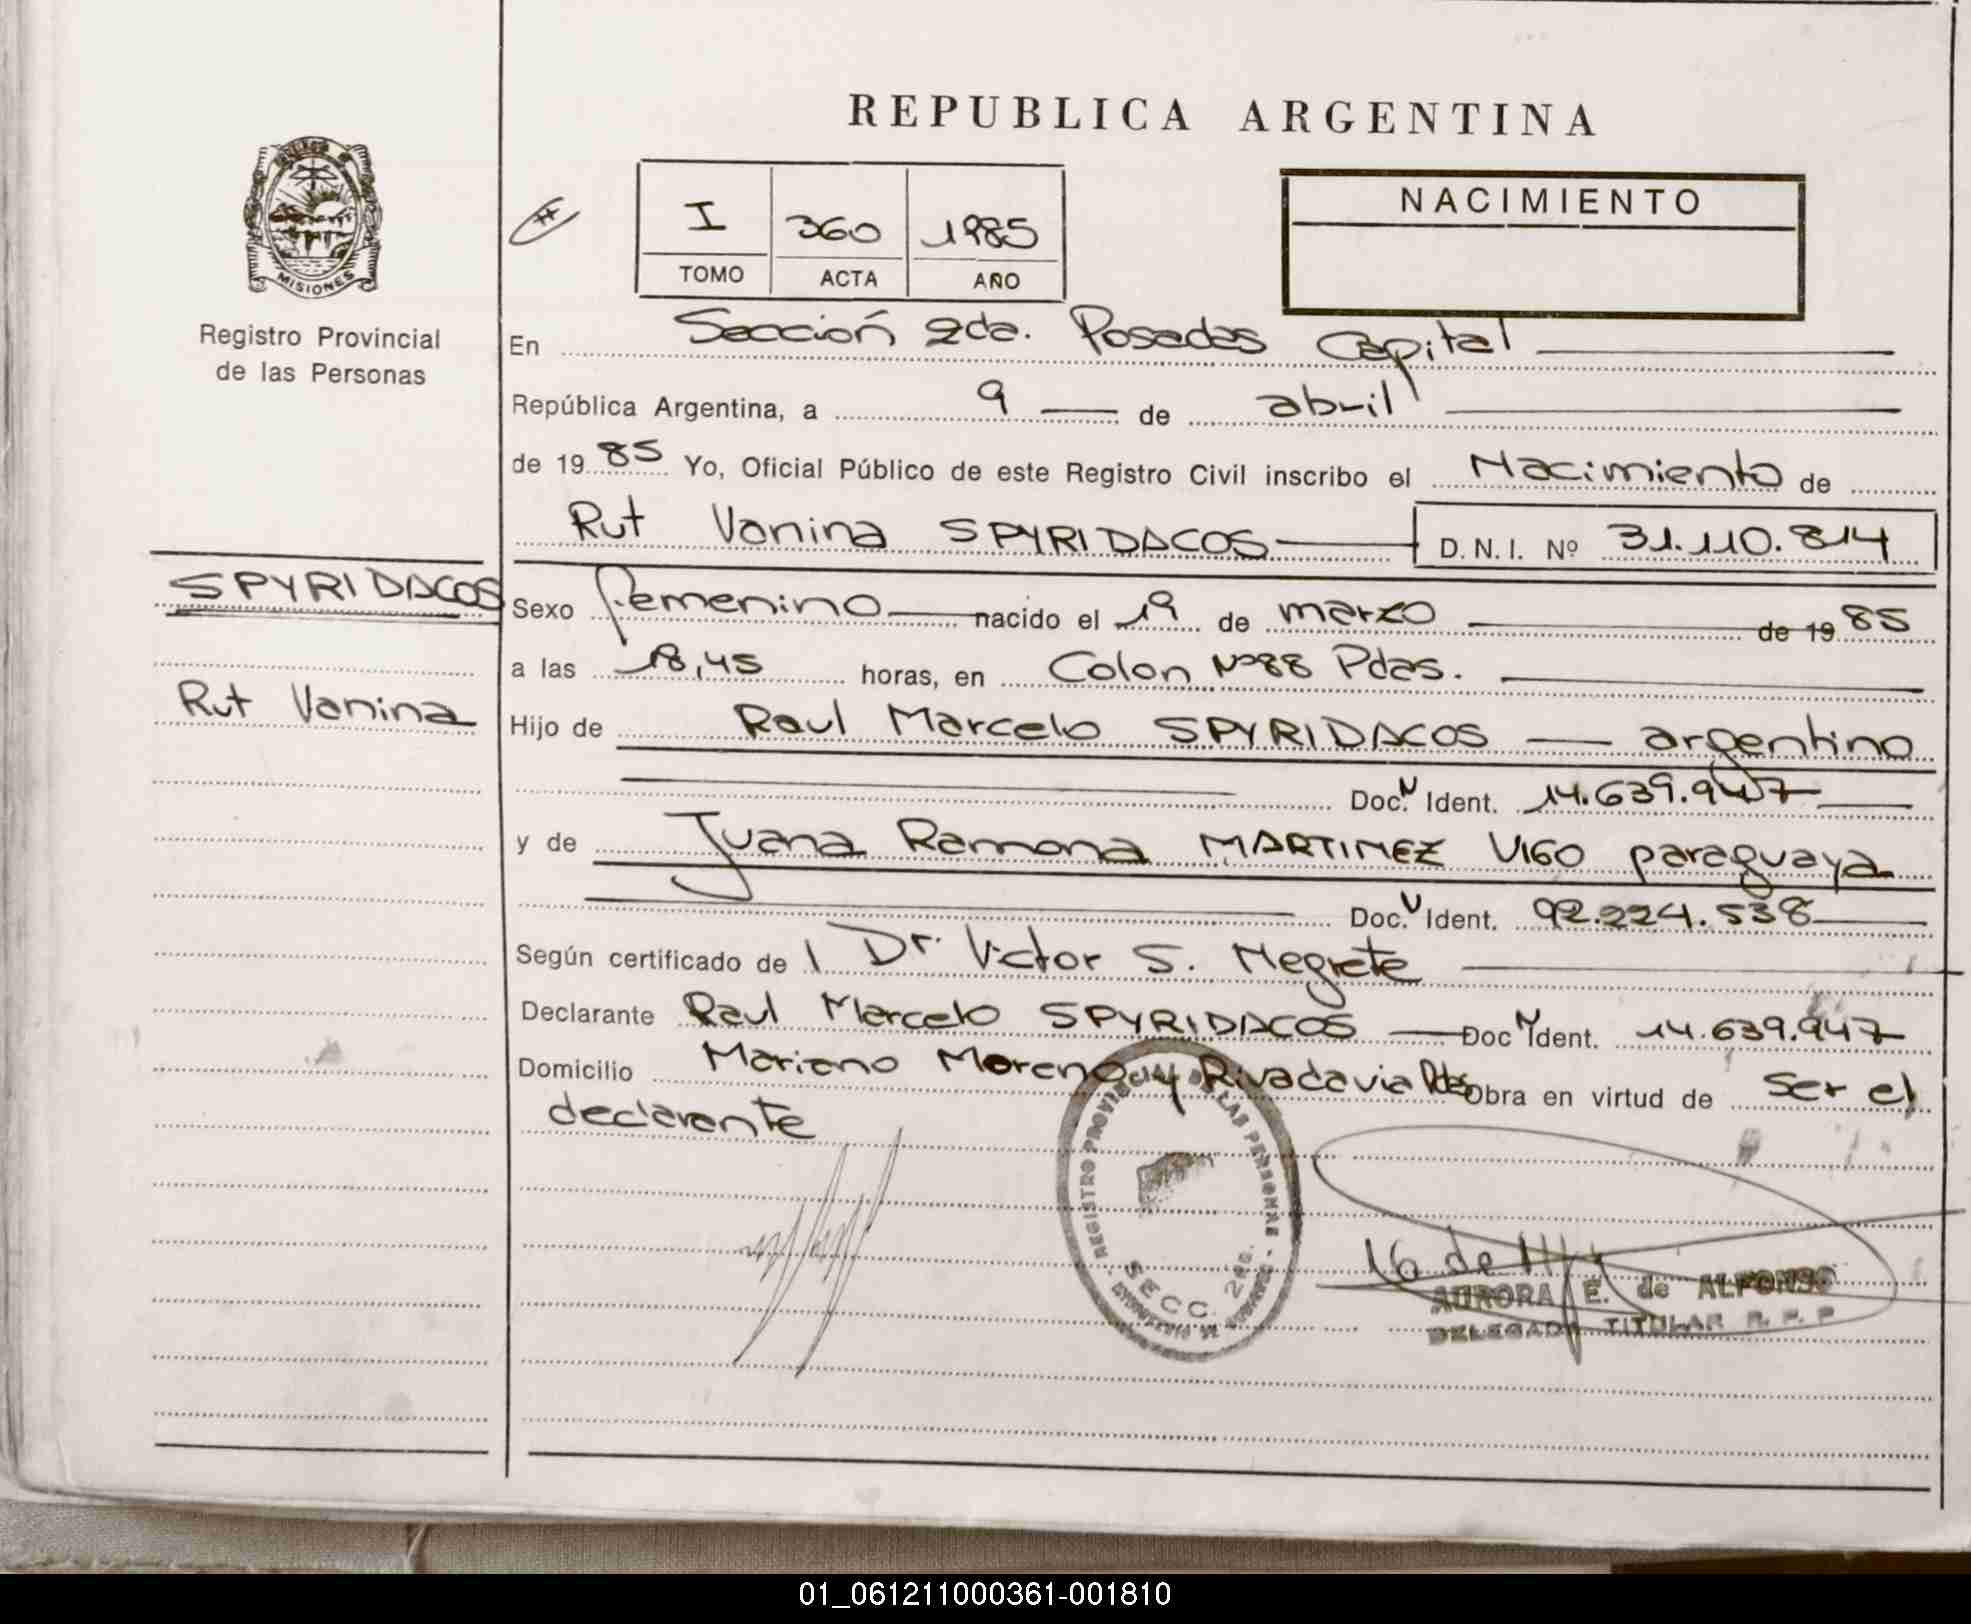 REPUBLICA ARGENTINA
MISIONES
Registro Provincial
de las Personas
I 360 1985
TOMO ACTA AÑO
NACIMIENTO
En Sección 2da. Posadas Capital
República Argentina, a 9 de abril
de 1985 Yo, Oficial Público de este Registro Civil inscribo el Nacimiento de
Rut Vanina SPYRIDACOS D.N.I. Nº 31.110.814
SPYRIDACOS
Rut Vanina
Sexo femenino nacido el 19 de marzo de 1985
a las 18,45 horas, en Colon Nº88 Pdas.
Hijo de Raul Marcelo SPYRIDACOS argentino
Doc. N Ident. 14.639.947
y de Juana Ramona MARTINEZ VIGO paraguaya
Doc. N Ident. 92.224.538
Según certificado de Dr. Victor S. Negrete
Declarante Raul Marcelo SPYRIDACOS Doc N Ident. 14.639.947
Domicilio Mariano Moreno y Rivadavia Pdas Obra en virtud de ser el
declarante
REGISTRO PROVINCIAL DE LAS PERSONAS
SECC. 2da.
16 de
AURORA E. de ALFONSO
DELEGADA TITULAR R. P. P
01_061211000361-001810